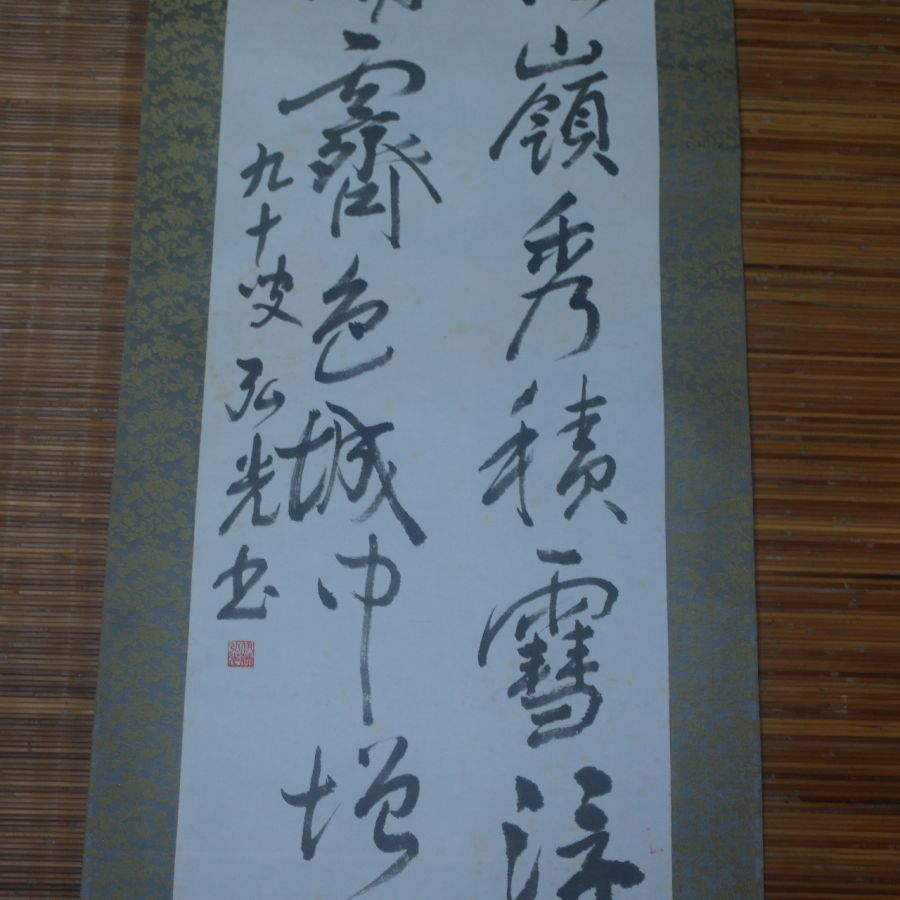 嶺秀積雪浮
霽色城中增
九十叟弘光書